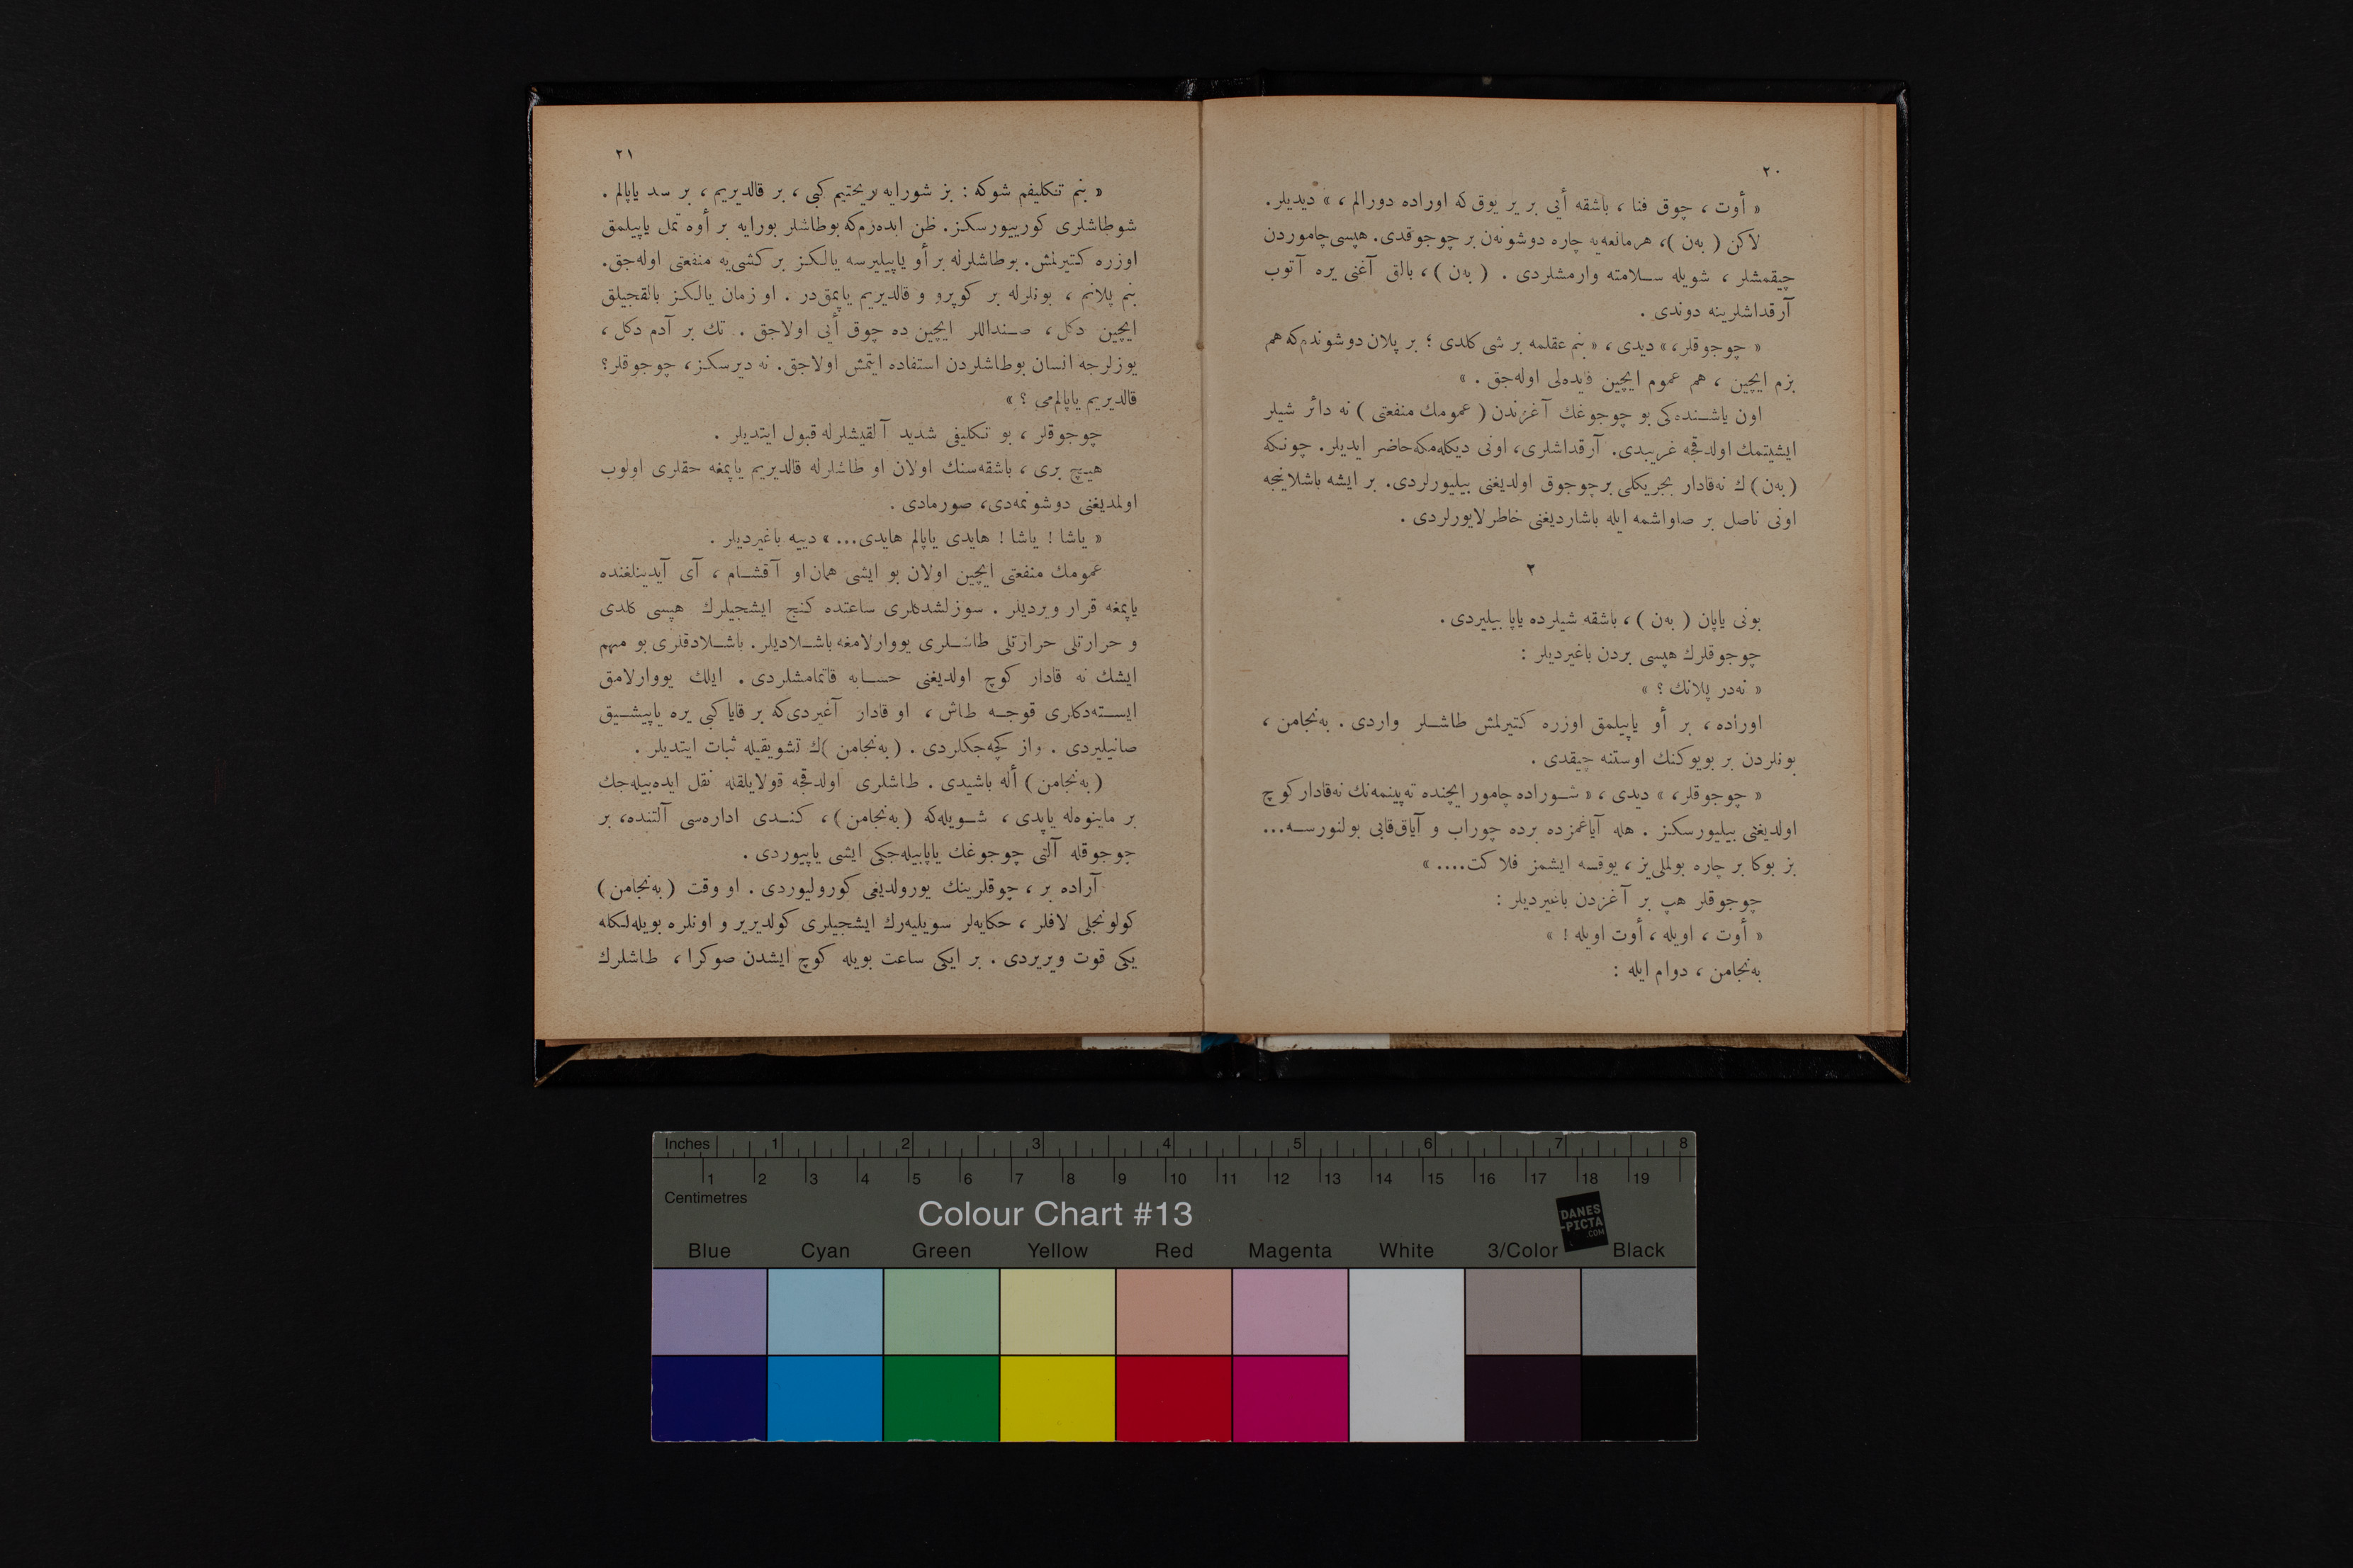 ٢٠
« أوت ، چوق فنا ، باشقه أيى بر ير يوق كه اوراده دورالم ، » ديديلر.
لاكن ( به‌ن )، هر مانعه‌يه چاره دوشونه‌ن بر چوجوقدى. هپسى چاموردن
چيقمشلر ، شويله سلامته وارمشلردى . ( به‌ن )، بالق آغنى يره آتوب
آرقداشلرينه دوندى .
« چوجوقلر، » ديدى ، « بنم عقلمه بر شى كلدى ؛ بر پلان دوشوندم كه هم
بزم ايچين ، هم عموم ايچين فايده‌لى اوله‌جق . »
اون ياشنده‌كى بو چوجوغك آغزندن ( عمومك منفعتى ) نه دائر شيلر
ايشيتمك اولدقجه غريبدى. آرقداشلرى، اونى ديكله‌مكه حاضر ايديلر. چونكه
(به‌ن) ك نه‌قادار بجريكلى بر چوجوق اولديغنى بيليورلردى. بر ايشه باشلاينجه
اونى ناصل بر صاواشمه ايله باشارديغنى خاطرلايورلردى .
٢
بونى ياپان ( به‌ن )، باشقه شيلرده ياپا بيليردى .
چوجوقلرك هپسى بردن باغيرديلر :
« نه‌در پلانك ؟ »
اوراده ، بر أو ياپيلمق اوزره كتيرلمش طاشلر واردى . به‌نجامن ،
بونلردن بر بويوكنك اوستنه چيقدى .
« چوجوقلر، » ديدى ، « شوراده چامور ايچنده ته‌پينمه‌نك نه‌قادار كوچ
اولديغنى بيليورسكز . هله آياغمزده برده چوراب و آياق‌قابى بولنورسه...
بز بوكا بر چاره بولملى‌يز ، يوقسه ايشمز فلاكت.... »
چوجوقلر هپ بر آغزدن باغيرديلر :
« أوت ، اويله ، أوت اويله ! »
به‌نجامن ، دوام ايله :
٢١
« بنم تكليفم شوكه : بز شورايه ريختيم كبى ، بر قالديريم ، بر سد ياپالم .
شوطاشلرى كورييورسكز. ظن ايده‌رم كه بوطاشلر بورايه بر أوه تمل ياپيلمق
اوزره كتيرلمش. بوطاشلرله بر أو ياپيليرسه يالكز بر كشى‌يه منفعتى اوله‌جق.
بنم پلانم ، بونلرله بر كوپرو و قالديريم ياپمق‌در . او زمان يالكز بالقجيلق
ايچين دكل ، صنداللر ايچين ده چوق أيى اولاجق . تك بر آدم دكل ،
يوزلرجه انسان بوطاشلردن استفاده ايتمش اولاجق. نه ديرسكز، چوجوقلر؟
قالديريم ياپالم‌مى ؟ »
چوجوقلر ، بو تكليفى شديد آلقيشلرله قبول ايتديلر .
هيچ برى ، باشقه‌سنك اولان او طاشلرله قالديريم ياپمغه حقلرى اولوب
اولمديغنى دوشونمه‌دى، صورمادى .
« ياشا ! ياشا ! هايدى ياپالم هايدى... » دييه باغيرديلر .
عمومك منفعتى ايچين اولان بو ايشى همان او آقشام ، آى آيدينلغنده
ياپمغه قرار ويرديلر . سوزلشدكلرى ساعتده كنج ايشجيلرك هپسى كلدى
و حرارتلى حرارتلى طاشلرى يووارلامغه باشلاديلر. باشلادقلرى بو مهم
ايشك نه قادار كوچ اولديغنى حسابه قاتمامشلردى . ايلك يووارلامق
ايسته‌دكلرى قوجه طاش ، او قادار آغيردى كه بر قايا كبى يره ياپيشيق
صانيليردى . واز كچه‌جكلردى . ( به‌نجامن )ك تشويقيله ثبات ايتديلر .
( به‌نجامن ) أله باشيدى . طاشلرى اولدقجه قولايلقله نقل ايده‌بيله‌جك
بر ماينوه‌له ياپدى ، شويله‌كه ( به‌نجامن )، كندى اداره‌سى آلتنده، بر
جوجوقله آلتى چوجوغك ياپابيله‌جكى ايشى ياپيوردى .
آراده بر ، چوقلرينك يورولديغى كورولييوردى . او وقت ( به‌نجامن )
كولونجلى لافلر ، حكايه‌لر سويليه‌رك ايشجيلرى كولديرير و اونلره بويله‌لكله
يكى قوت ويريردى . بر ايكى ساعت بويله كوچ ايشدن صوكرا ، طاشلرك
Inches 1 2 3 4 5 6 7 8
1 2 3 4 5 6 7 8 9 10 11 12 13 14 15 16 17 18 19
Centimetres
Colour Chart #13
DANES
-PICTA
.COM
Blue Cyan Green Yellow Red Magenta White 3/Color Black